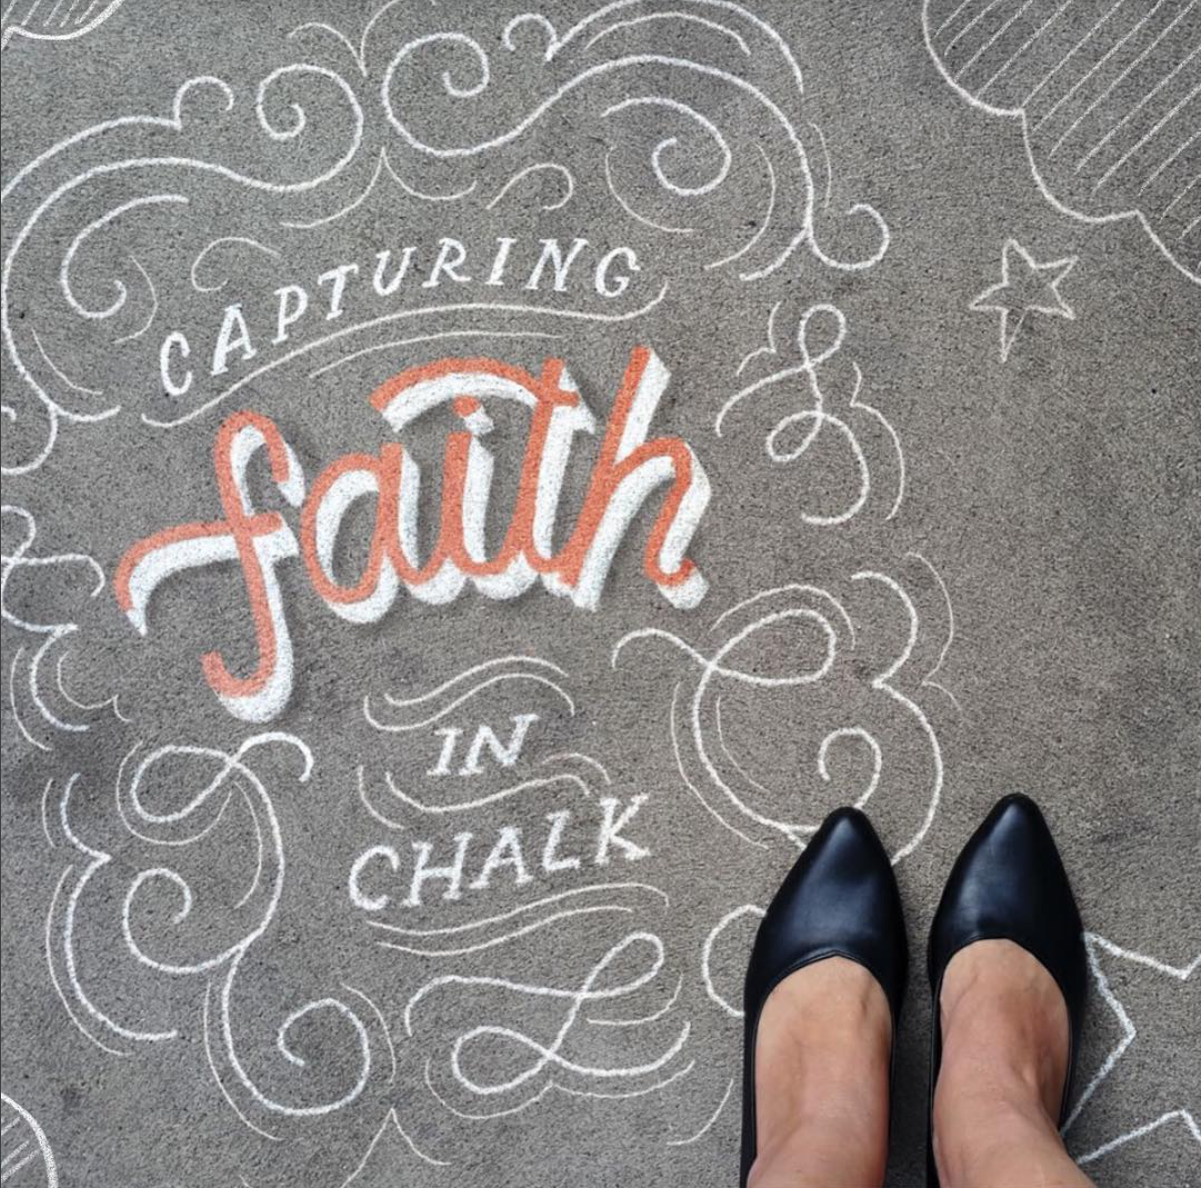 CAPTURING
faith
IN
CHALK